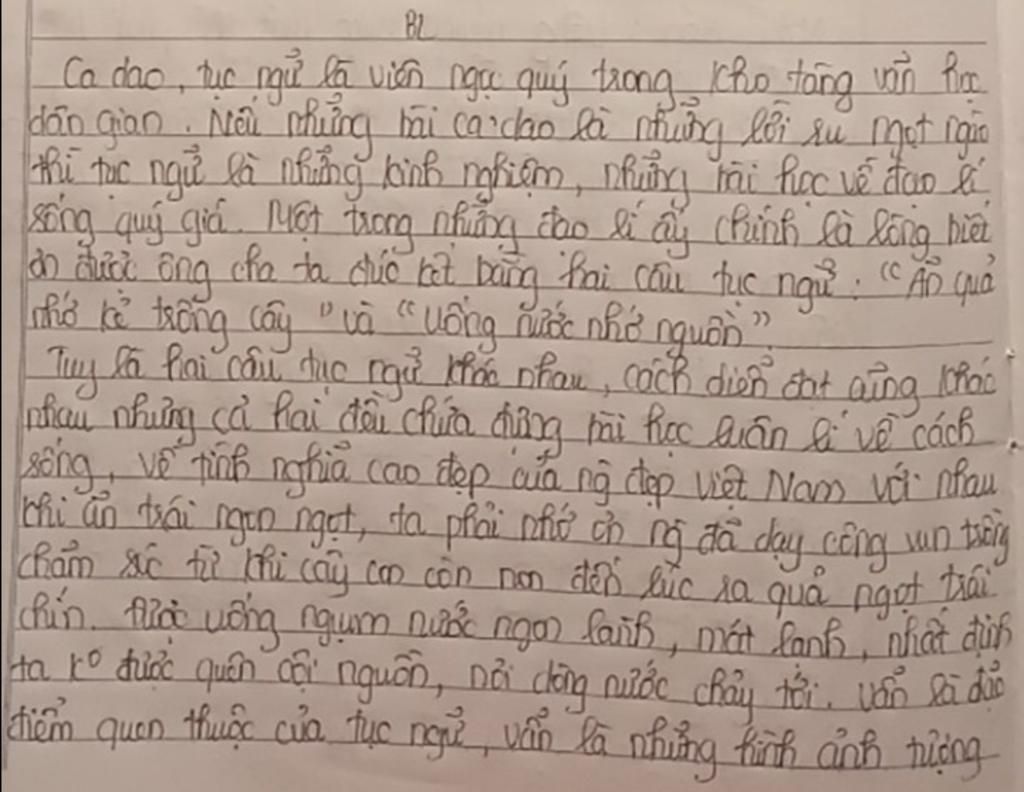 BL
Ca dao, tục ngữ là viên ngọc quý trong kho tàng văn học
dân gian. Nếu những bài ca dao là những lời ru ngọt ngào
thì tục ngữ là những kinh nghiệm, những bài học về đạo lí
sống quý giá. Một trong những đạo lí ấy chính là lòng biết
ơn được ông cha ta đúc kết bằng hai câu tục ngữ: "Ăn quả
nhớ kẻ trồng cây" và "Uống nước nhớ nguồn".
Tuy là hai câu tục ngữ khác nhau, cách diễn đạt cũng khác
nhau nhưng cả hai đều chứa đựng bài học luân lí về cách
sống, về tình nghĩa cao đẹp của ng đẹp Việt Nam với nhau
khi ăn trái ngon ngọt, ta phải nhớ ơn ng đã dạy công vun trồng
chăm sóc từ khi cây con còn non đến lúc ra quả ngọt trái
chín. Được uống ngụm nước ngon lành, mát lành, nhất định
ta ko được quên cội nguồn, nơi dòng nước chảy tới. Vẫn là đặc
điểm quen thuộc của tục ngữ, vẫn là những hình ảnh tượng